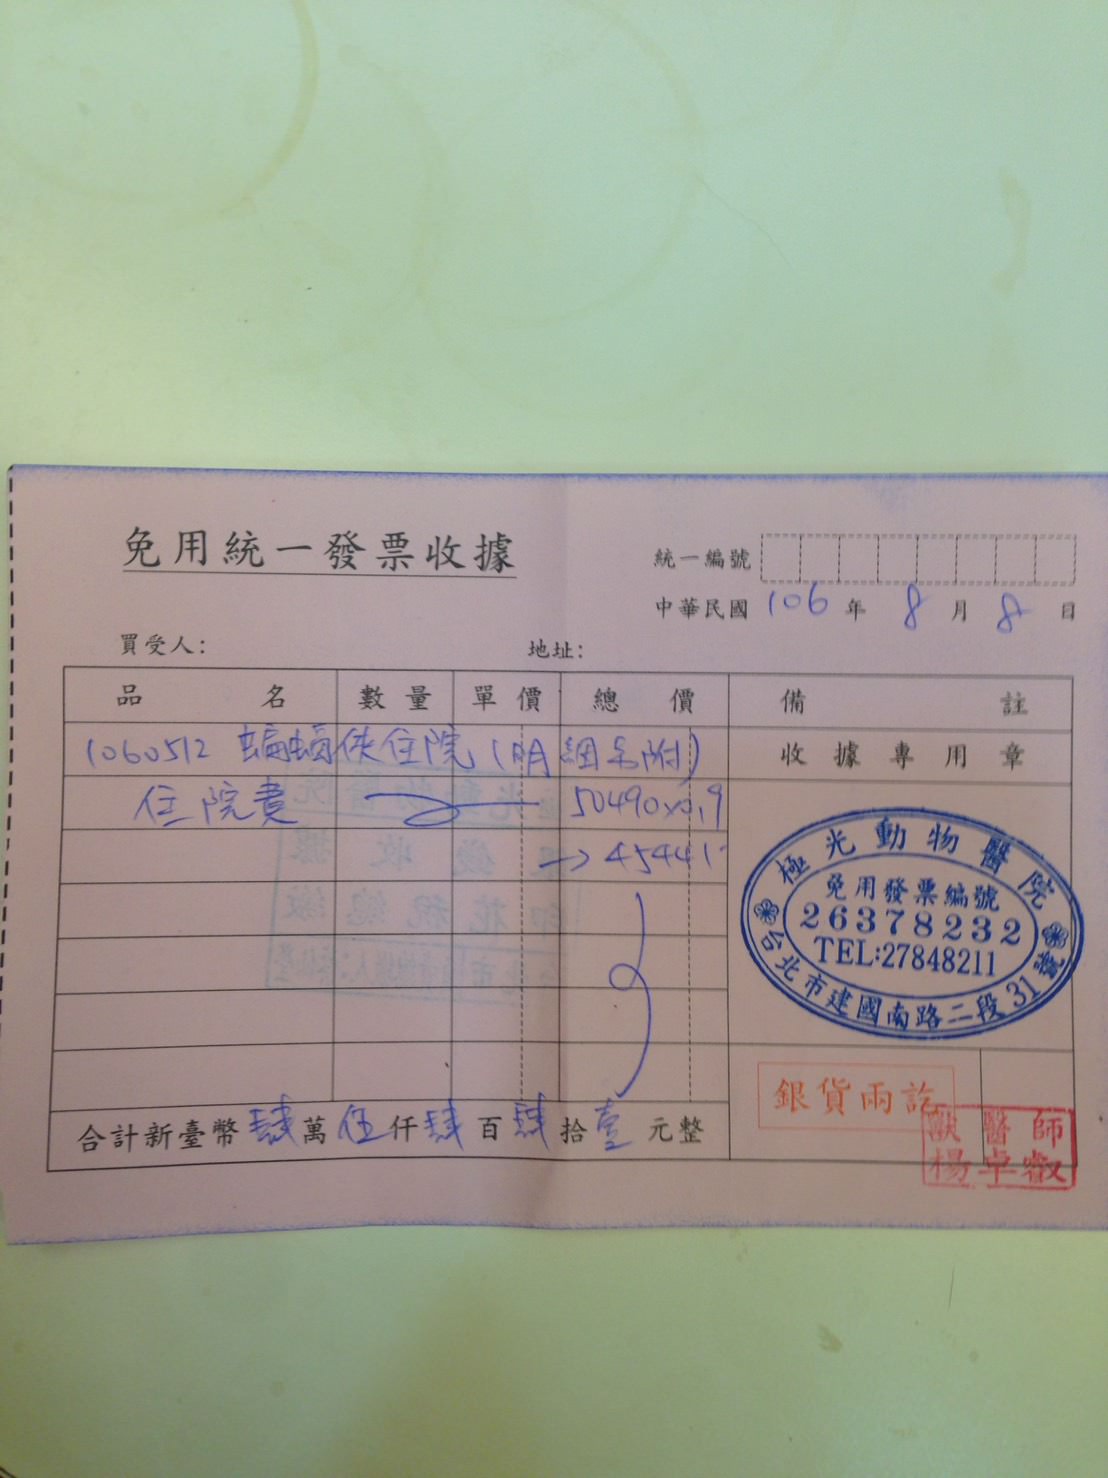 免用統一發票收據
統一編號
中華民國 106 年 8 月 8 日
買受人: 地址:
品名 數量 單價 總價 備註
1060512 蝙蝠俠住院 (明細如附) 收據專用章
住院費 50490x0.9
→ 45441
合計新臺幣肆萬伍仟肆百肆拾壹元整
極光動物醫院
免用發票編號
26378232
TEL:27848211
台北市建國南路二段31號
銀貨兩訖
獸醫師
楊卓叡